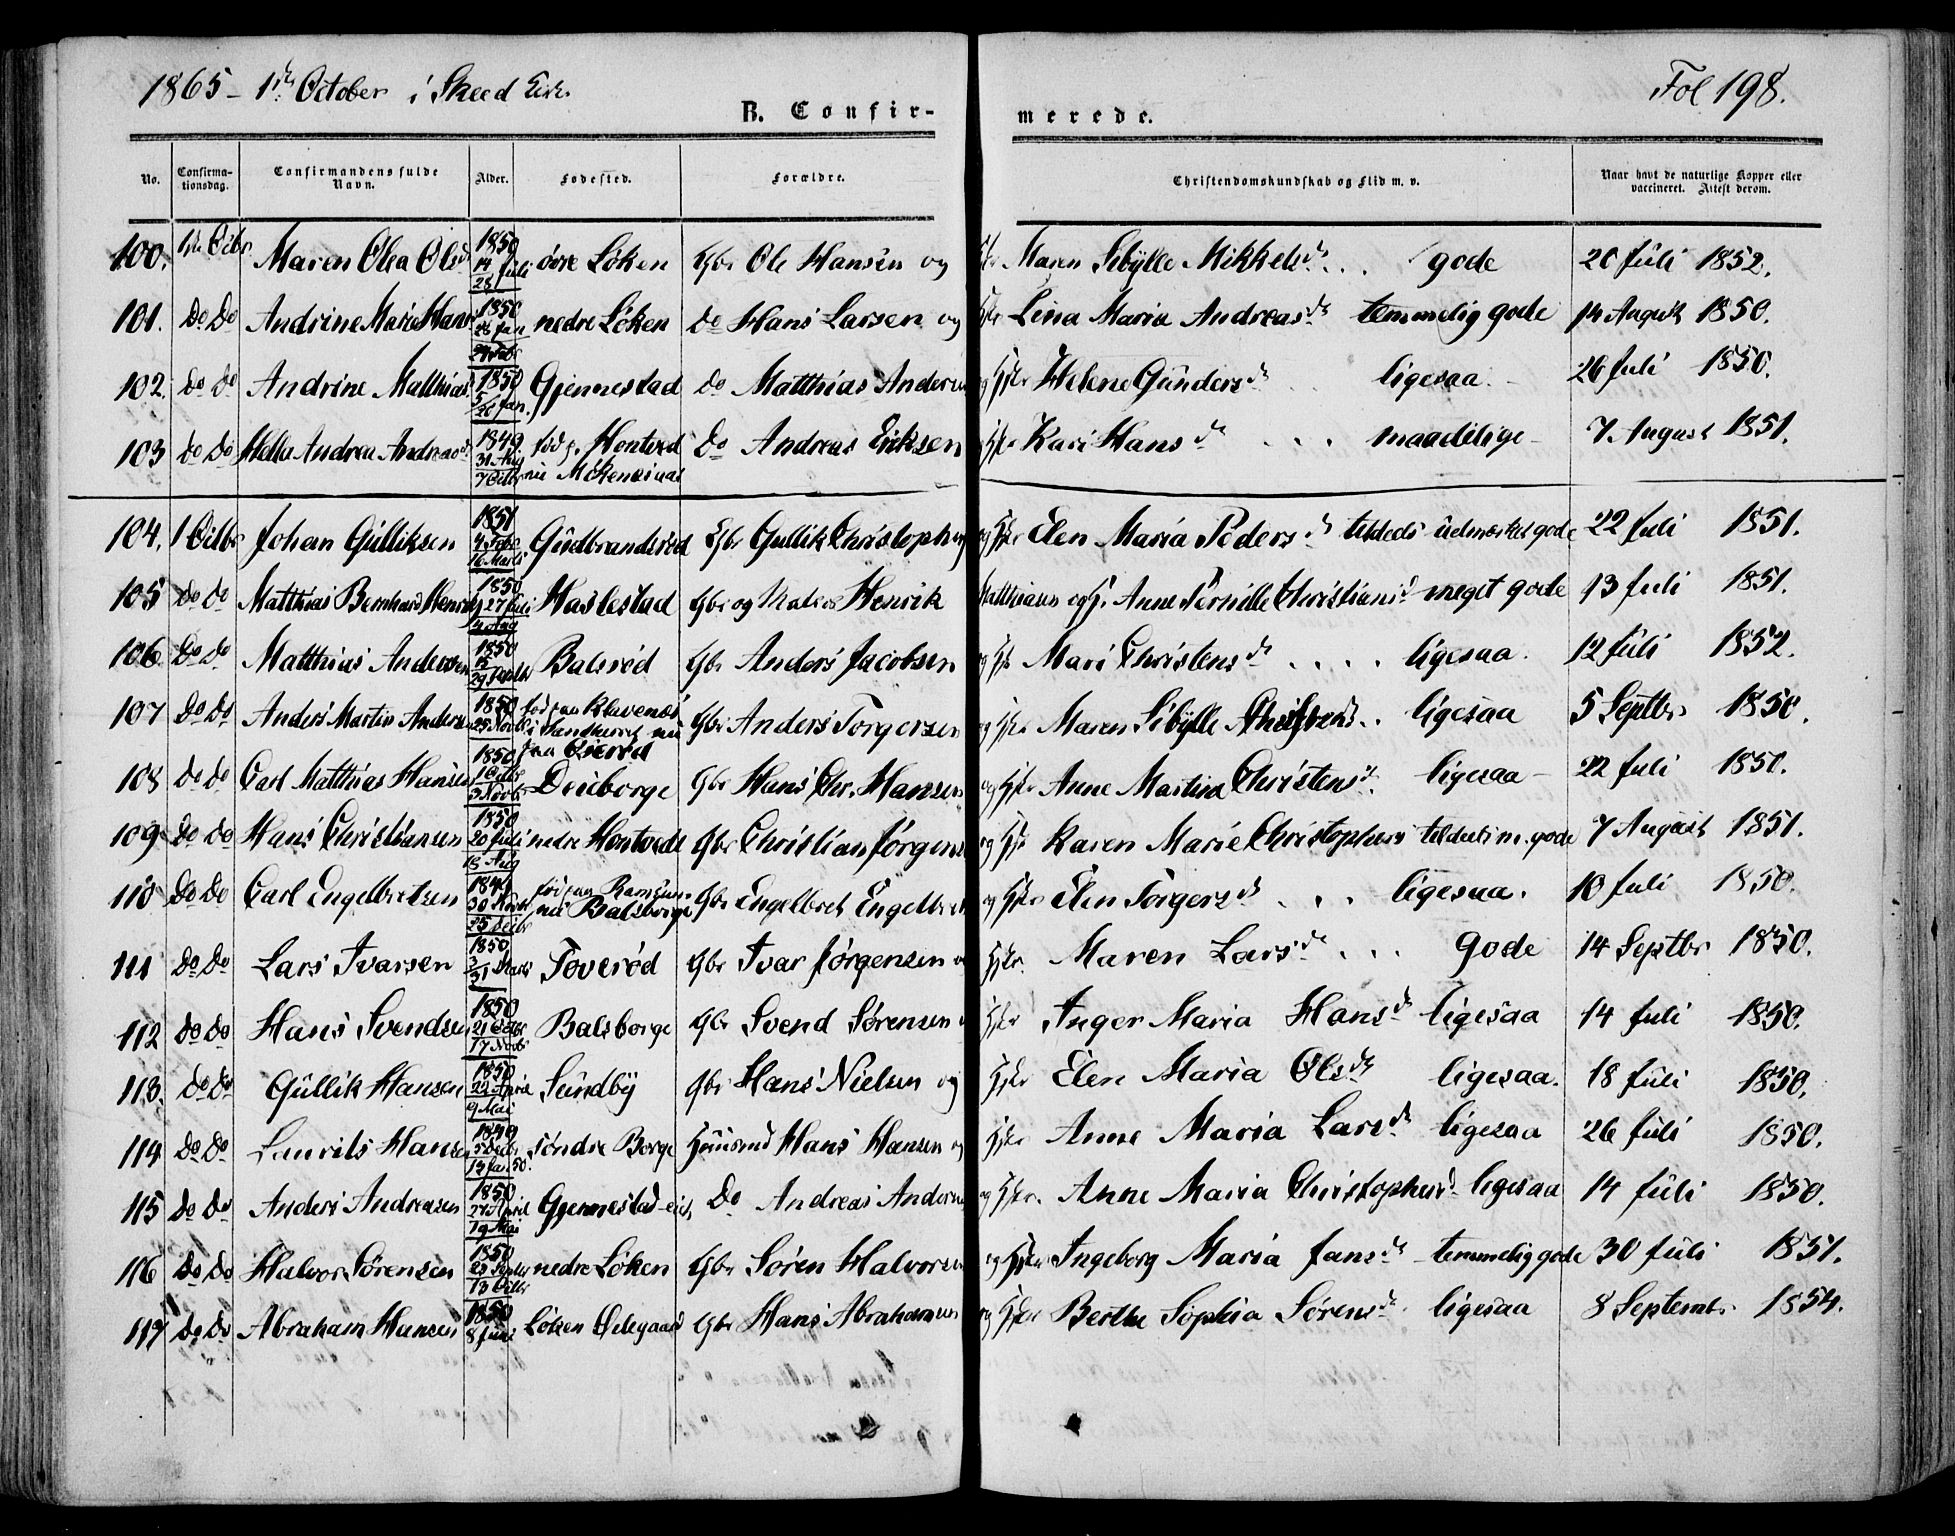 1865 - 1ste October i Skeed Kirke. Fol 198.
B. Confirmerede.
No. Confirmationsdag. Confirmandens fulde Navn. Alder. Fødested. Forældre. Christendomskundskab og Flid m. v. Naar havt de naturlige Kopper eller vaccineret. Attest derom.
100. 1ste Octbr Maren Olea Olsd. 1850 14 Juli 28 øvre Løken Gbr Ole Hansen og Maren Sibylle Mikkelsd. . . gode 20 Juli 1852.
101. Do Do Andrine Marie Hansd 1850 26 Jan 24 Febr nedre Løken Do Hans Larsen og Lina Maria Andreasd. temmelig gode 14 August 1850.
102. Do Do Andrine Matthiasd 1850 5/26 Jan. Gjennestad Do Matthias Andersen og Hstr Helene Gundersd. ligesaa. - 26 Juli 1850.
103 Do Do Helle Andrea Andreasd. 1849. 31 Aug 7 Octbr fød p. Hontved nu Do Andreas Eriksen Hstr Kari Hansd . . . maadelige - 7 August 1851.
104. 1 Octbr Johan Gulliksen 1851 4 Febr 16 Marts Gudbrandsrød Gbr Gullik Christophers og Hstr Elen Maria Pedersd. tildeels udmærket gode 22 Juli 1851.
105 Do Do Matthias Bernhard Henrik 1850 27 Juli 4 Aug Haslestad Gbr og Henrik Matthiasen og H. Anne Pernille Christiansd meget gode 13 Juli 1851.
106. Do Do Matthias Andersen 1850 29 Septbr Balsrød Gbr Anders Jacobsen og Hstr Mari Christensd . . . . ligesaa. 12 Juli 1852.
107 Do Do Anders Martin Andersen 1850 25 Novbr fød paa Klavenæs i Sandherred nu paa Gbr Anders Torgersen og Hstr Maren Sibylle . . ligesaa 5 Septbr 1850.
108 Do Do Carl Matthias Hansen 1850 1 Octbr 3 Novbr Gbr Hans Chr. Hansen og Hstr Anne Martina Christensd. ligesaa - 22 Juli 1851.
109 Do Do Hans Christiansen 1850 20 Juli 18 Aug nedre Hontvedt Gbr Christian Jørgensen og Hstr Karen Marie Christophersd tildeels m. gode 7 August 1851.
110 Do Do Carl Engelbretsen 1849 30 Novbr 25 Decbr fød paa Ramsum nu Balsborge Gbr Engelbret Engelbrets og Hstr Elen Torgersd . . . ligesaa. 10 Juli 1850.
111 Do Do Lars Ivarsen 1850 3/31 Marts Toverød Gbr Ivar Jørgensen og Hstr. Maren Larsd . . . gode 14 Septbr 1850.
112 Do Do Hans Svendsen 1850 21 Octbr 17 Novbr Balsborge Gbr Svend Sørensen Hstr Inger Maria Hansd ligesaa 14 Juli 1850.
113. Do Do Gullik Hansen 1850 22 April 9 Mai Sundby Gbr Hans Nielsen og Hstr Elen Maria Olsd. ligesaa. 18 Juli 1850.
114 Do Do Laurits Hansen 1849 5 Decbr 13 Jan 50. søndre Borge Huusmd Hans Hansen og Hstr Anne Maria Larsd. ligesaa 26 Juli 1850.
115 Do Do Anders Andreasen 1850 24 April 19 Mai Gjennestad-eie Do Andreas Andersen og Hstr. Anne Maria Christophersd. ligesaa 14 Juli 1850.
116 Do Do Halvor Sørensen 1850 23 Septbr 13 Octbr nedre Løken Gbr Søren Halvorsen og Hstr Ingeborg Maria Jansd - temmelig gode 30 Juli 1851.
117 Do Do Abraham Hansen 1850 8 Juni Løken Ødegaard Gbr Hans Abrahamsen og Hstr Berthe Sophia Sørensd. ligesaa 8 Septembr 1854.